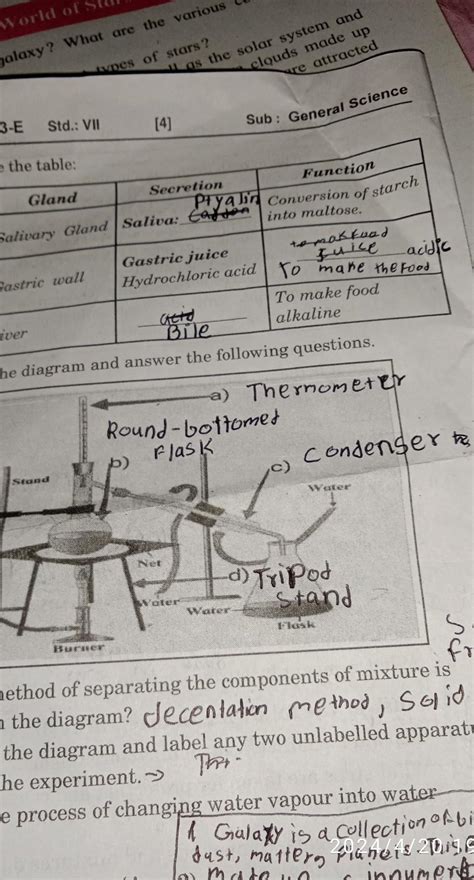 World of
galaxy? What are the various
types of stars?
as the solar system and
clouds made up
are attracted
3-E Std.: VII [4] Sub : General Science
the table:
Gland Secretion Function
Salivary Gland Saliva: Ptyalin Conversion of starch into maltose.
Gastric wall Gastric juice Hydrochloric acid To make the food acidic
iver Bile To make food alkaline
he diagram and answer the following questions.
a) Thermometer
Round-bottomed
Flask
b)
c) Condenser
Stand
Water
Net
d) Tripod
Stand
Water
Water
Flask
Burner
ethod of separating the components of mixture is
the diagram? decentation method, Solid
the diagram and label any two unlabelled apparat
he experiment.→
e process of changing water vapour into water
A Galaxy is a collection of bi
dust, matter, Planets this
innumer
2024/4/20